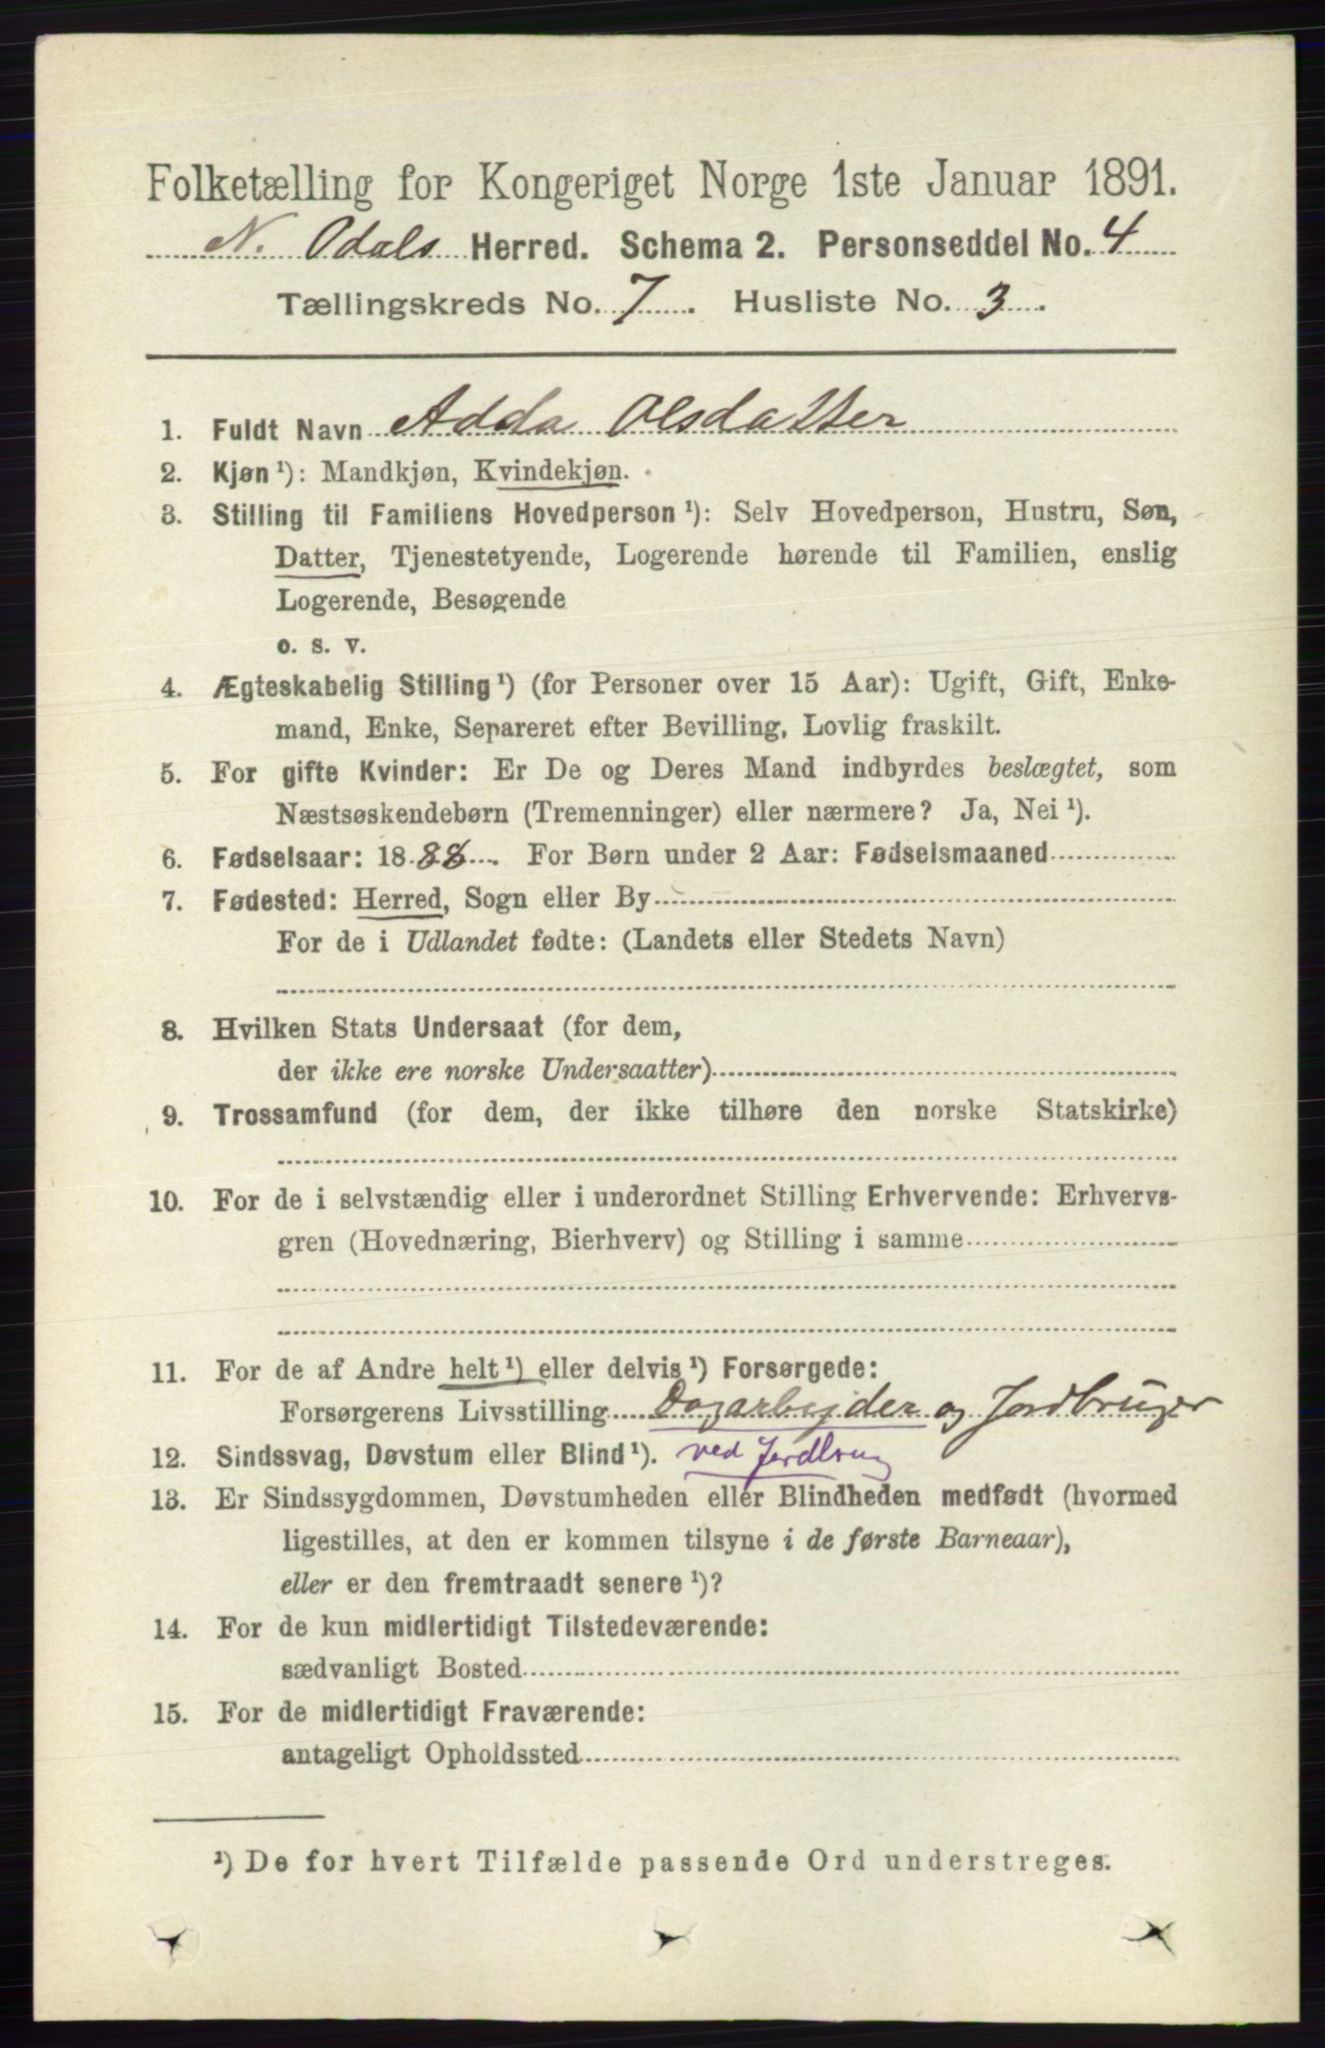 Folketælling for Kongeriget Norge 1ste Januar 1891.
N. Odals Herred. Schema 2. Personseddel No. 4
Tællingskreds No. 7. Husliste No. 3.
1. Fuldt Navn Adda Olsdatter
2. Kjøn ¹): Mandkjøn, Kvindekjøn.
3. Stilling til Familiens Hovedperson ¹): Selv Hovedperson, Hustru, Søn,
Datter, Tjenestetyende, Logerende hørende til Familien, enslig
Logerende, Besøgende
o. s. v.
4. Ægteskabelig Stilling ¹) (for Personer over 15 Aar): Ugift, Gift, Enke-
mand, Enke, Separeret efter Bevilling, Lovlig fraskilt.
5. For gifte Kvinder: Er De og Deres Mand indbyrdes beslægtet, som
Næstsøskendebørn (Tremenninger) eller nærmere? Ja, Nei ¹).
6. Fødselsaar: 1888. For Børn under 2 Aar: Fødselsmaaned
7. Fødested: Herred, Sogn eller By
For de i Udlandet fødte: (Landets eller Stedets Navn)
8. Hvilken Stats Undersaat (for dem,
der ikke ere norske Undersaatter)
9. Trossamfund (for dem, der ikke tilhøre den norske Statskirke)
10. For de i selvstændig eller i underordnet Stilling Erhvervende: Erhvervs-
gren (Hovednæring, Bierhverv) og Stilling i samme
11. For de af Andre helt ¹) eller delvis ¹) Forsørgede:
Forsørgerens Livsstilling Dagarbejder og Jordbruger
12. Sindssvag, Døvstum eller Blind ¹). ved Jordbrug
13. Er Sindssygdommen, Døvstumheden eller Blindheden medfødt (hvormed
ligestilles, at den er kommen tilsyne i de første Barneaar),
eller er den fremtraadt senere ¹)?
14. For de kun midlertidigt Tilstedeværende:
sædvanligt Bosted
15. For de midlertidigt Fraværende:
antageligt Opholdssted
¹) De for hvert Tilfælde passende Ord understreges.